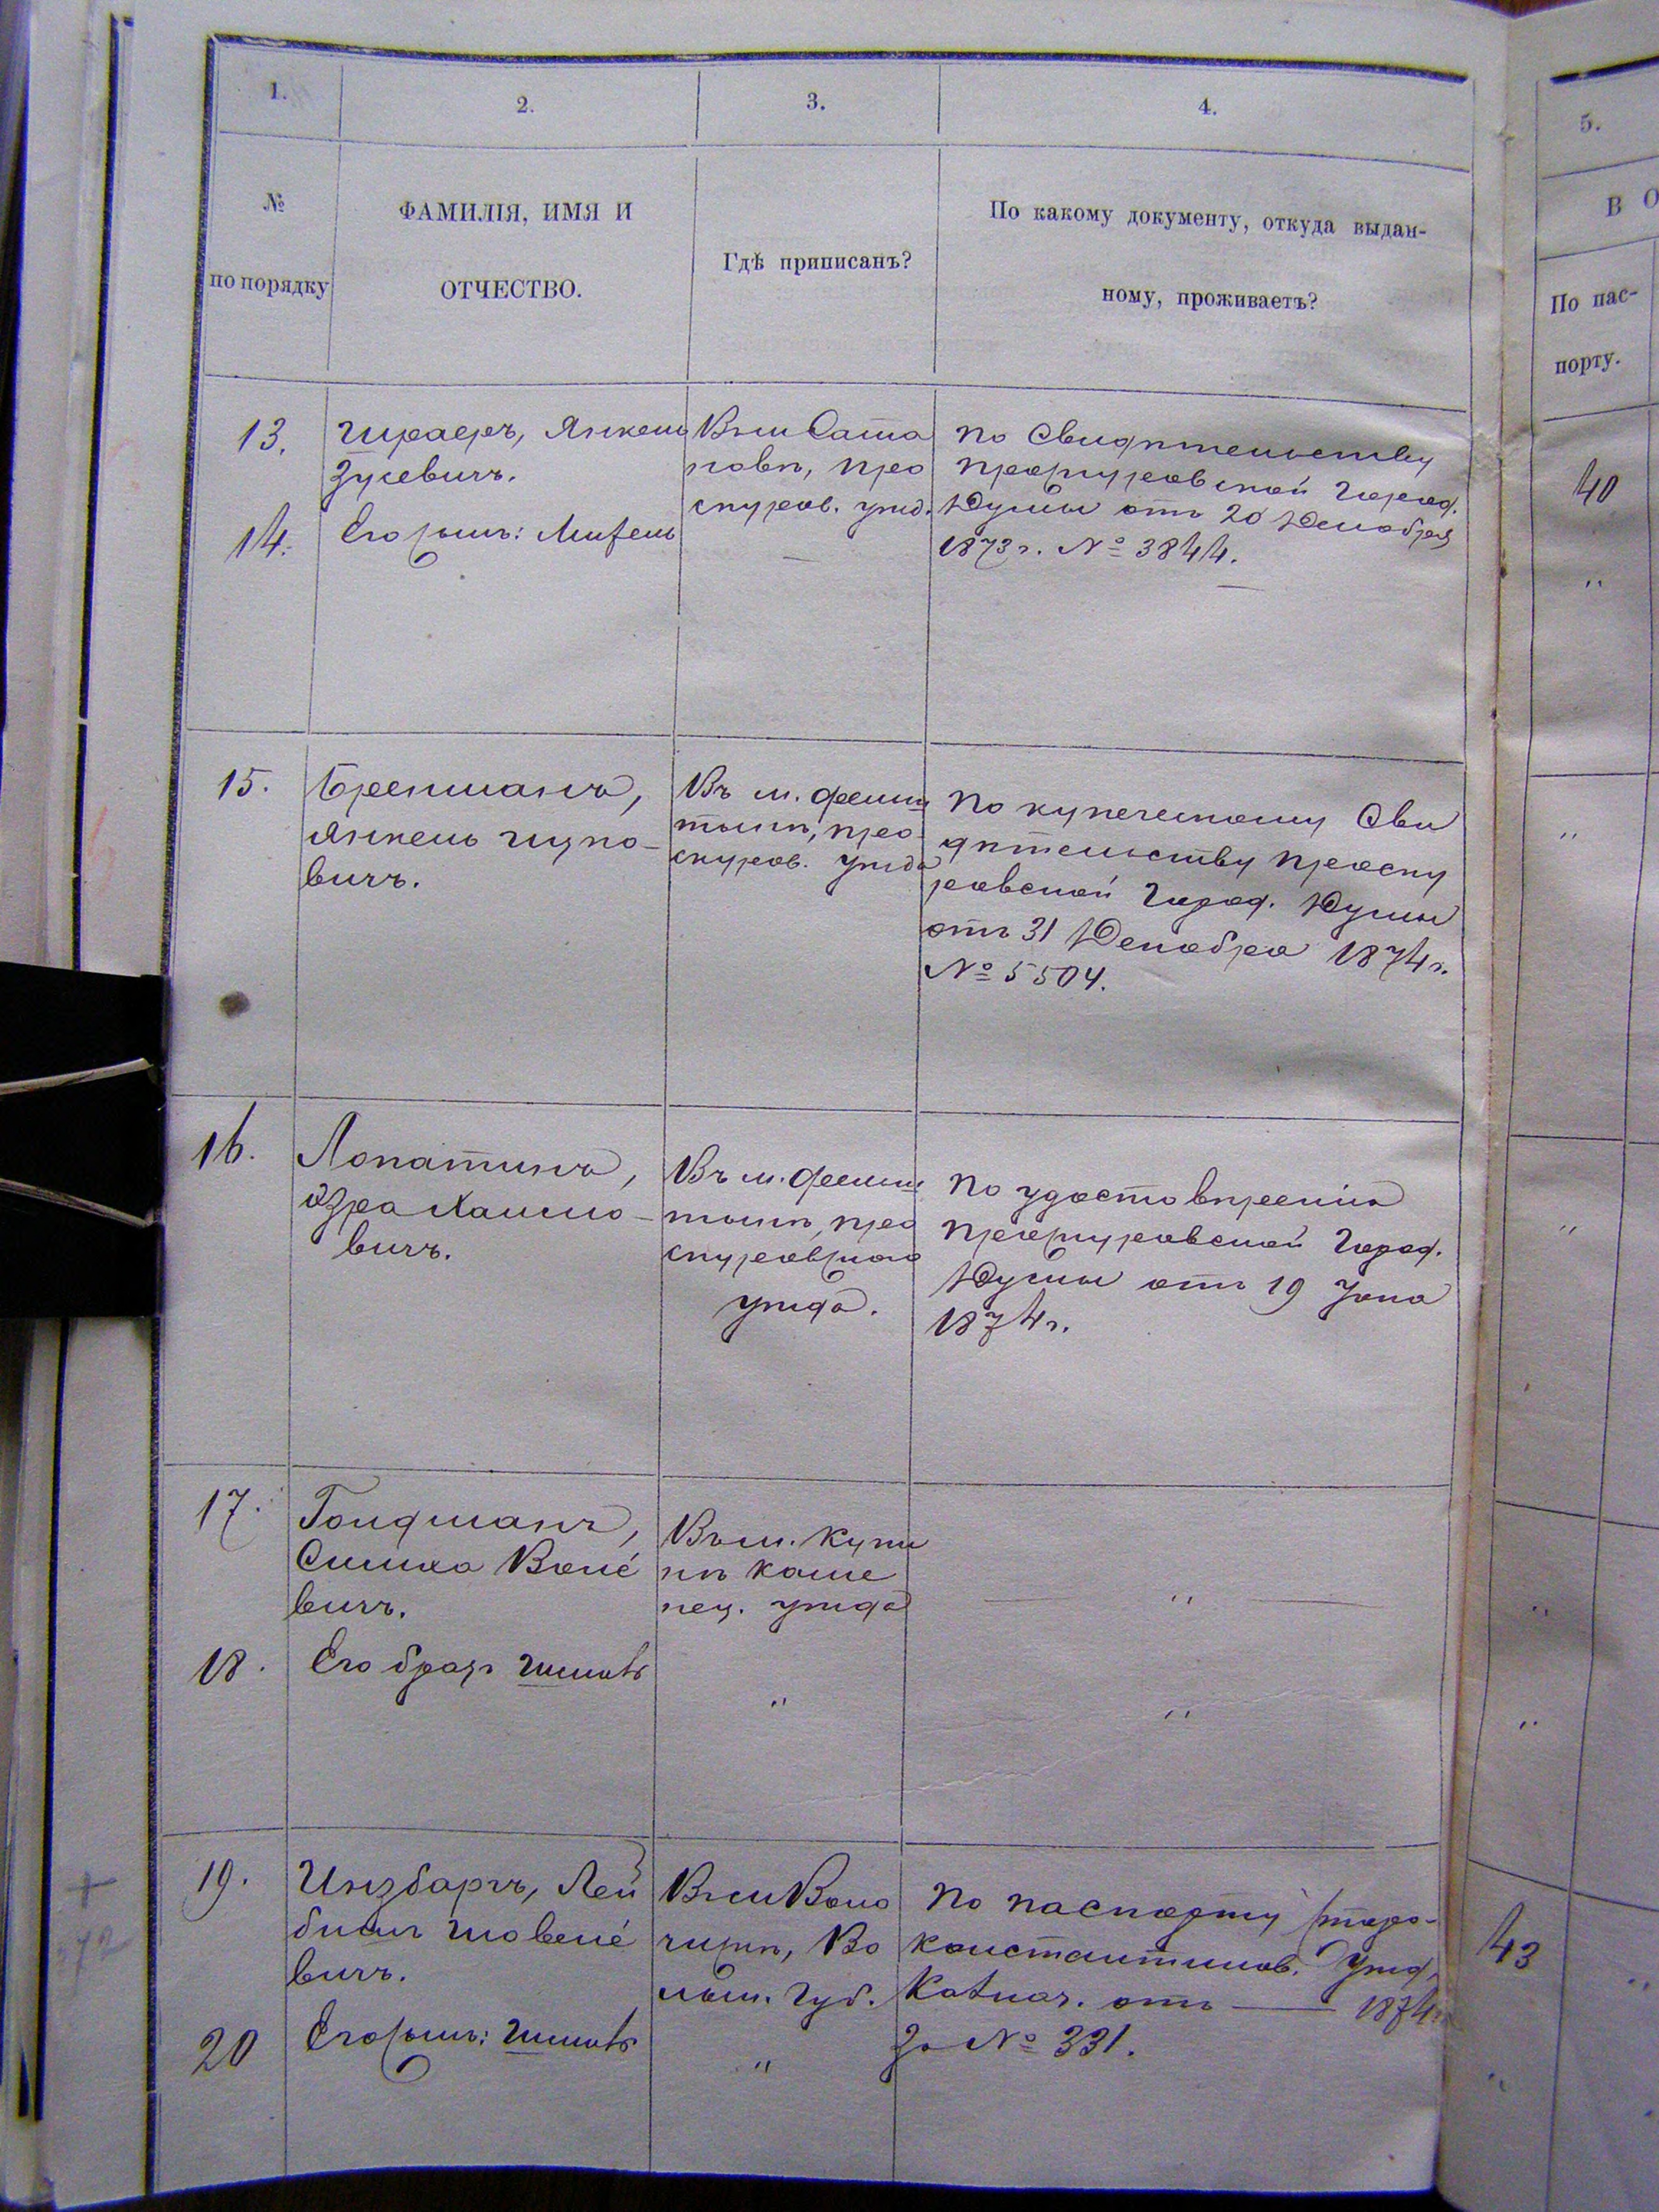 1.
2.
3.
4.
5.
№
по порядку
ФАМИЛІЯ, ИМЯ И
ОТЧЕСТВО.
Гдѣ приписанъ?
По какому документу, откуда выдан-
ному, проживаетъ?
В О
По пас-
порту.
13.
Шраеръ, Янкель
Зусевичъ.
Въ м. Сата
новѣ, Про
скуров. уѣзд.
По Свидѣтельству
Проскуровской Город.
Думы отъ 20 Декабря
1873 г. № 3844.
40
14.
Его сынъ: Мифель
—
—
"
15.
Бренманъ,
Янкель Ицко-
вичъ.
Въ м. Фельш
тынѣ, Про
скуров. уѣзда
По купеческому Сви
дѣтельству Проску
ровской Город. Думы
отъ 31 Декабря 1874 г.
№ 5504.
"
16.
Лопатинъ,
Эзра Хаимо-
вичъ.
Въ м. Фельш
тынѣ, Про
скуровскаго
уѣзда.
По удостовѣренію
Проскуровской Город.
Думы отъ 19
1874 г.
"
17.
Гольдманъ,
Симха Волье
вичъ.
Въ м. Купи
нѣ Каме
нец. уѣзда
"
"
18.
Его братъ
"
"
"
19.
Инзбаргъ, Лей
вичъ.
Въ м. Воло
чискѣ, Во
лын. губ.
По паспорту Старо-
константинов. Уѣзд.
Казнач. отъ — 1874 г.
за № 331.
43
"
20
Его сынъ:
"
"